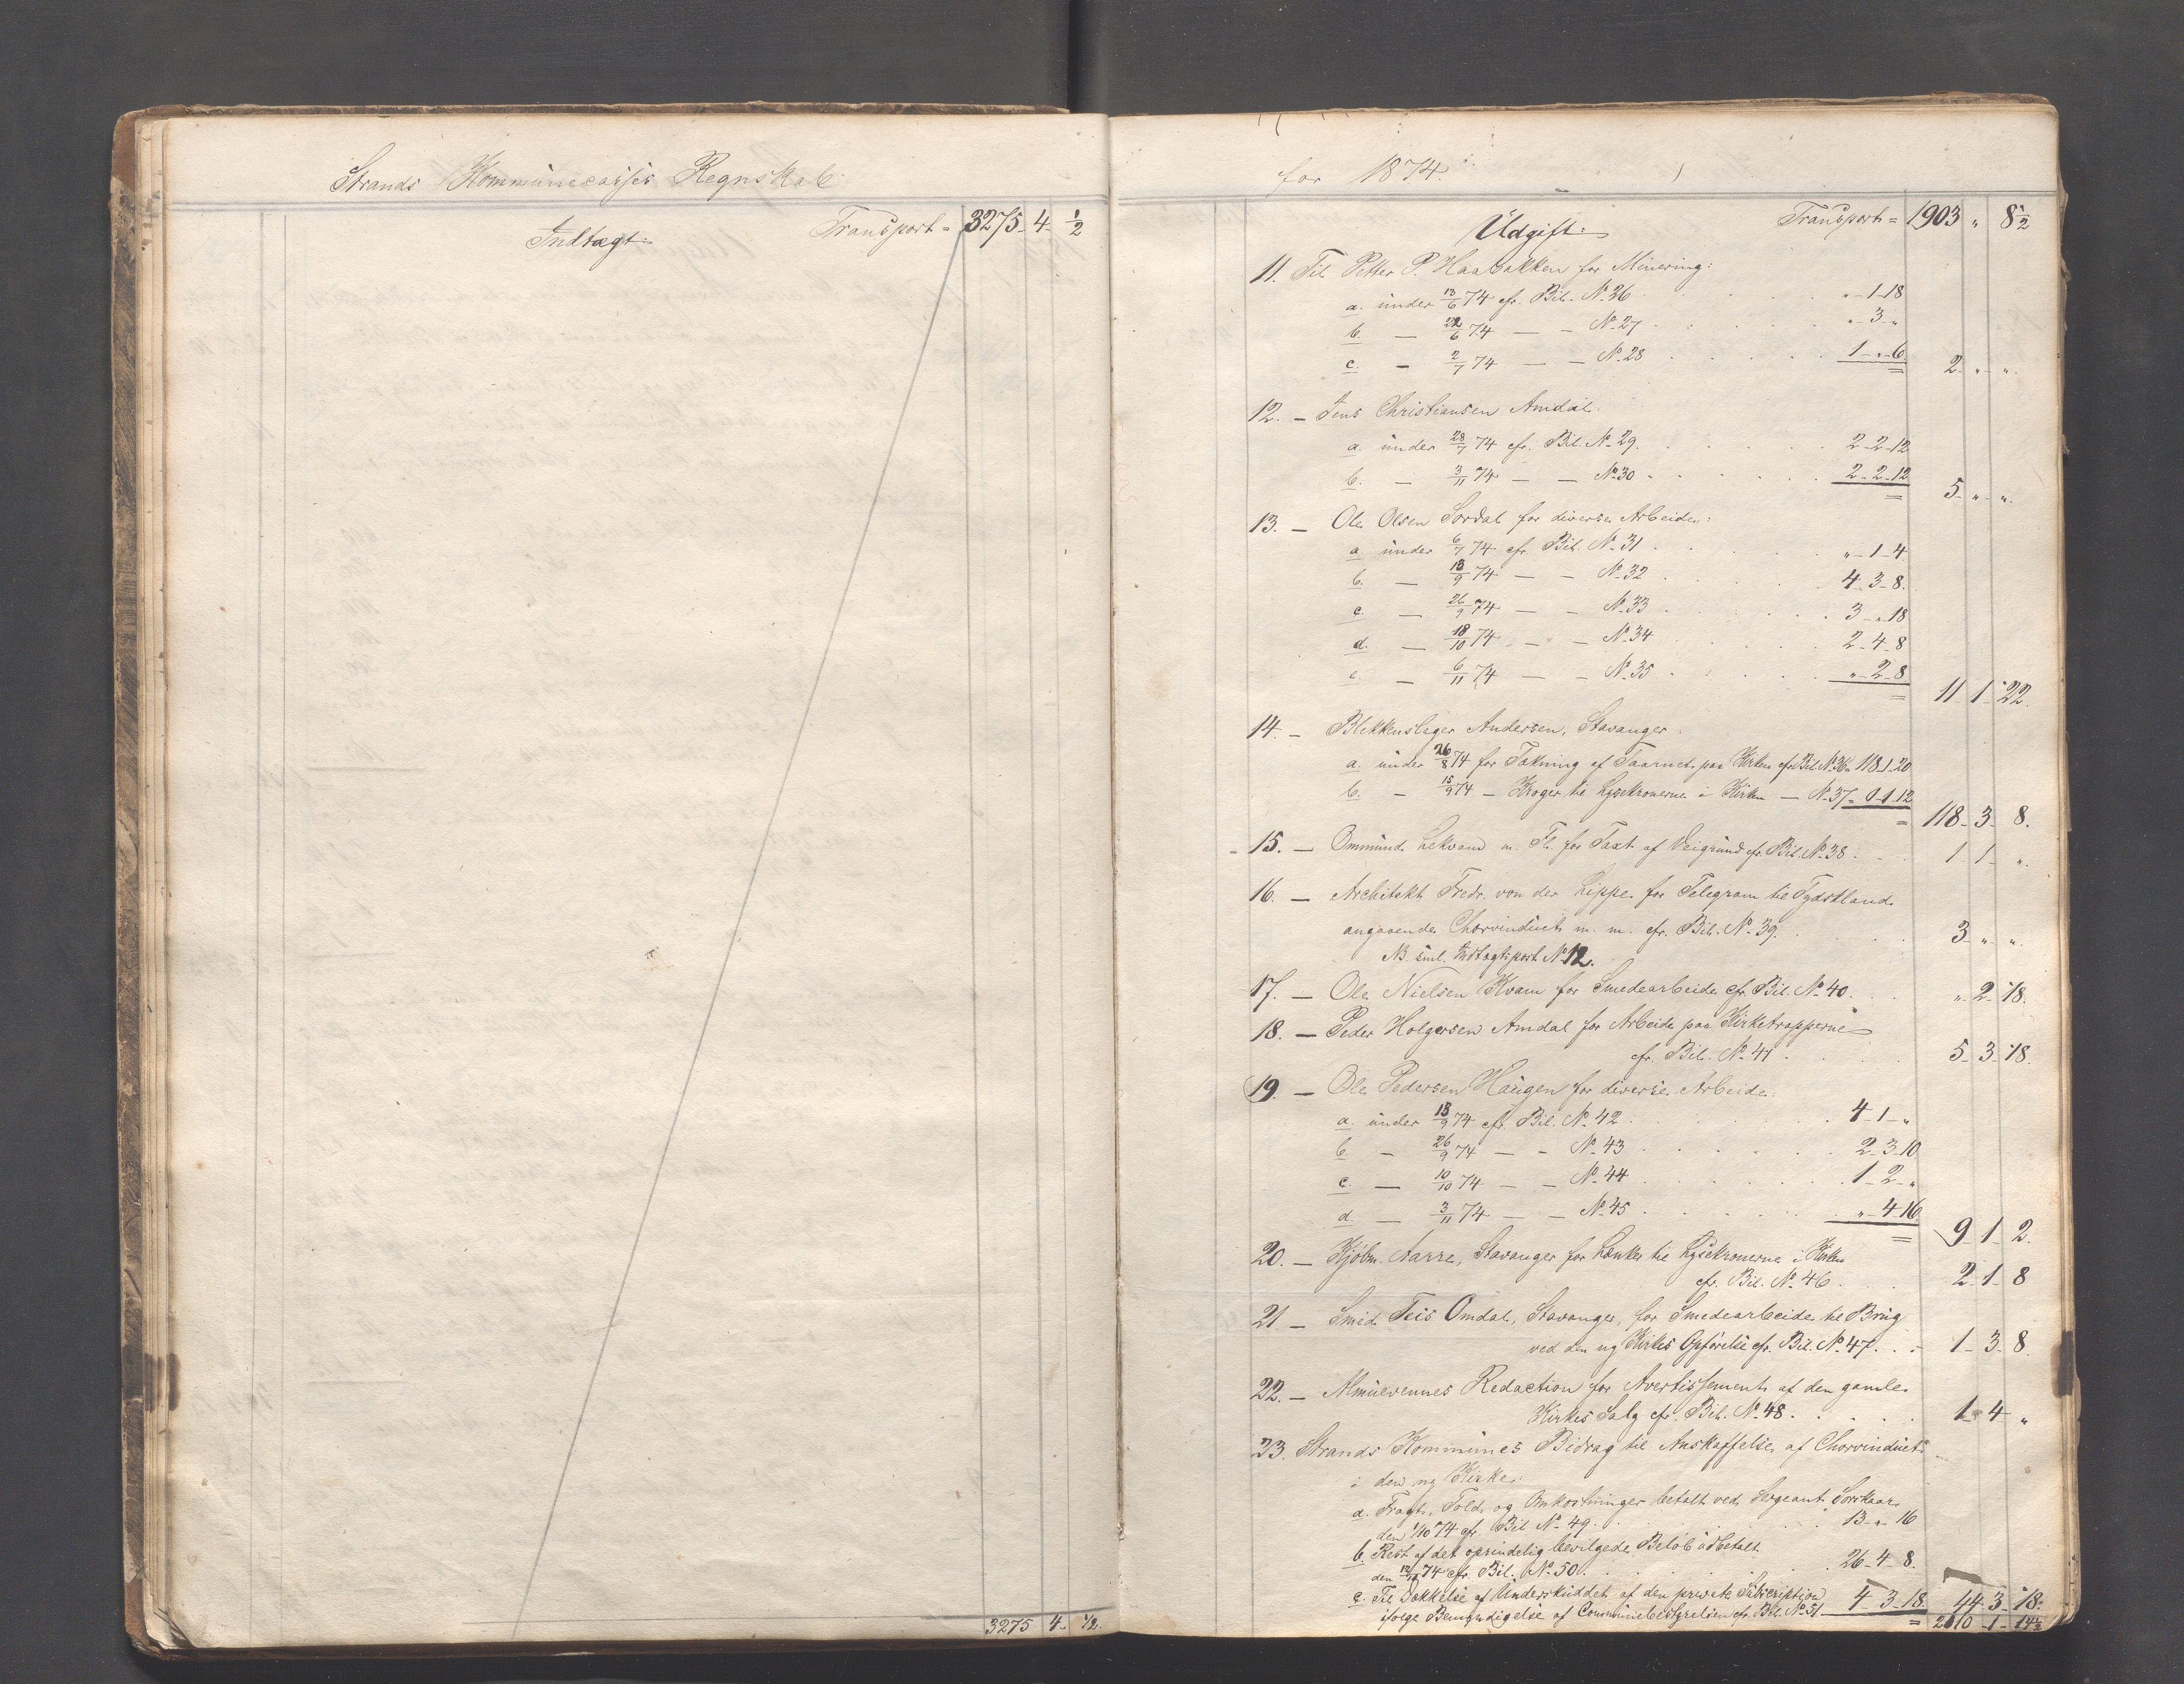 Strands Kommunecasses Regnskab
Indtægt: Transport = 3275 - 4 - 1/2
3275 4 - 1/2
for 1874.
Udgift: Transport = 1903 " 8 1/2
11. Til Petter P. Haabakken for Minering:
a. under 13/6 74 cfr. Bil. No. 26 . . . " - 1 - 18
b. — 22/6 74 — — No. 27 . . . " - 3 - "
c. — 2/7 74 — — No. 28 . . . 1 - " - 6 = 2 - " - "
12. — Jens Christiansen Amdal:
a. under 28/7 74 cfr. Bil. No. 29. . . . 2 - 2 - 12
b. — 3/11 74 — — No. 30 . . . 2 - 2 - 12 = 5 - " - "
13. — Ole Olsen Sordal for diverse Arbeide:
a. under 6/7 74 cfr. Bil. No. 31 . . . " - 1 - 4
b. — 13/9 74 — — No. 32 . . . 4 - 3 - 8.
c. — 26/9 74 — — No. 33 . . . 3 - " 18
d. — 18/10 74 — — No. 34 . . . 2 - 4 - 8
e. — 6/11 74 — — No. 35 . . . " - 2 - 8 = 11 - 1 - 22.
14. — Blikkenslager Andersen, Stavanger:
a. under 26/8 74 for Tækning af Taarnet paa Kirken cfr. Bil. No. 36 118 - 1 - 20
b. — 15/9 74 — Kroger til Lysekronerne i Kirken — No. 37 - 0 - 1 - 12 = 118 - 3 - 8.
15. — Ommund Lekvam m. Fl. for Taxt af Veigrund cfr. Bil. No. 38 . . . 1 - 1 - "
16. — Architekt Fredr. von der Lippe for Telegram til Tydskland
angaaende Chorvinduet m. m. cfr. Bil. No. 39. . . . 3 - " - "
NB. sml. Indtægtspost No. 12.
17. — Ole Nielsen Kvam for Smedearbeide cfr. Bil. No. 40. . . " - 2 - 18.
18. — Peder Holgersen Amdal for Arbeide paa Kirketrapperne
cfr. Bil. No. 41 . . . 5 - 3 - 18.
19. — Ole Pedersen Haugen for diverse Arbeide:
a. under 18/9 74 cfr. Bil. No. 42 . . . 4 - 1 - "
b. — 26/9 74 — — No. 43 . . . 2 - 3 - 10
c. — 10/10 74 — — No. 44 . . . 1 - 2 - "
d. — 3/11 74 — — No. 45 . . . " - 4 - 16 = 9 - 1 - 2.
20. — Kjøbm. Aarre, Stavanger for Lænker til Lysekronerne i Kirken
cfr. Bil. No. 46 . . . 2 - 1 - 8
21. — Smed Teis Omdal, Stavanger, for Smedearbeide til Brug
ved den ny Kirkes Opførelse cfr. Bil. No. 47. . . 1 - 3 - 8.
22. — Almuevennes Redaction for Avertissement af den gamle
Kirkes Salg cfr. Bil. No. 48 . . . 1 - 4 - "
23. Strands Kommunes Bidrag til Anskaffelse af Chorvinduet
i den ny Kirke:
a. Fragt, Told og Omkostninger betalt ved Sergeant Sorskaar
den 1/10 74 cfr. Bil. No. 49. . . . 13 - " - 16
b. Rest af det oprindelig bevilgede Beløb udbetalt
den 12/11 74 cfr. Bil. No. 50. . . . 26 - 4 - 8.
c. Til Dækkelse af Underskuddet af den private Subscription
ifølge Bemyndigelse af Communebestyrelsen cfr. Bil. No. 51 4 - 3 - 18. = 44 - 3 - 18.
2610 - 1 - 14 1/2